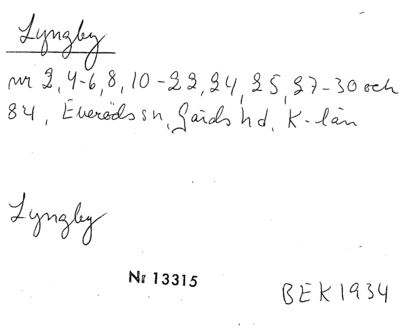 Lyngby
nr 2, 4-6, 8, 10-22, 24, 25, 27-30 och
84, Everöds sn, Gärds hd, K-län
Lyngby
Nr 13315
BEK1934